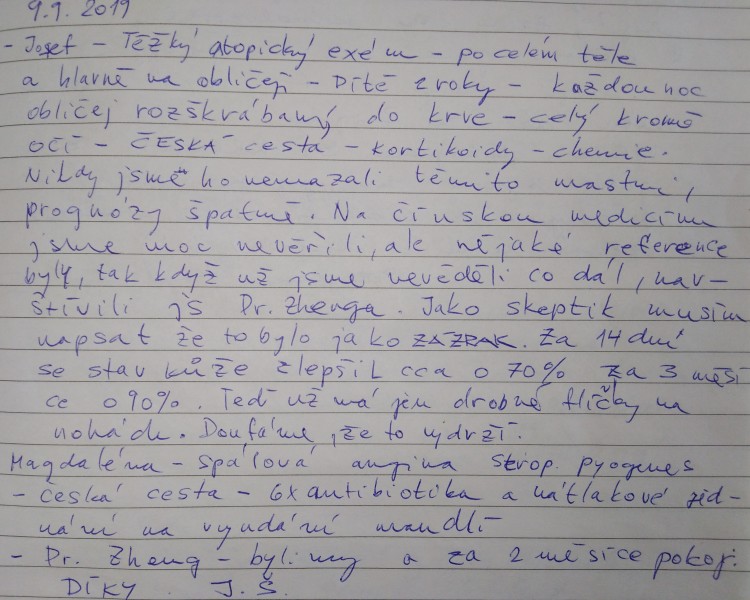 9.9. 2019
- Josef - Těžký atopický exém - po celém těle
a hlavně na obličeji - Dítě 2 roky - každou noc
obličej rozškrábaný do krve - celý kromě
očí - ČESKÁ cesta - kortikoidy - chemie.
Nikdy jsme ho nemazali těmito mastmi,
prognózy špatné. Na čínskou medicínu
jsme moc nevěřili, ale nějaké reference
byly, tak když už jsme nevěděli co dál, nav-
štívili js Dr. Zhenga. Jako skeptik musím
napsat že to bylo jako ZÁZRAK. Za 14 dní
se stav kůže zlepšil cca o 70% za 3 měsí
ce o 90%. Teď už má jen drobné flíčky na
nohách. Doufáme, že to vydrží.
Magdaléna - spálová angína strep. pyogenes
- česká cesta - 6x antibiotika a nátlakové jed-
nání na vyndání mandlí
- Dr. Zheng - byliny a za 2 měsíce pokoj.
DÍKY J.Š.